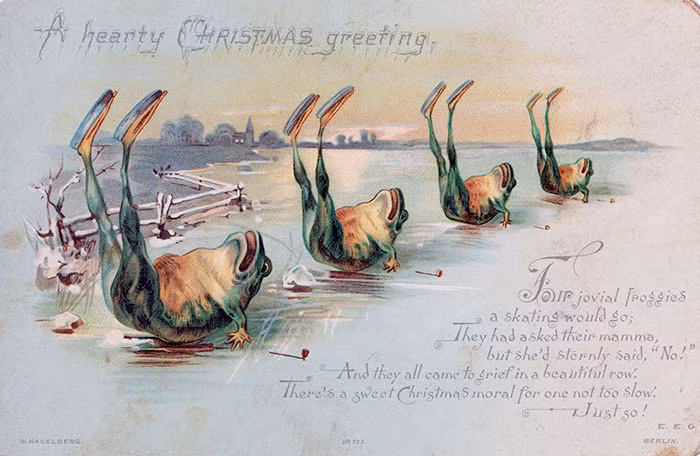 A hearty CHRISTMAS greeting.
Four jovial froggies
a skating would go;
They had asked their mamma,
but she'd sternly said, "No!"
And they all came to grief in a beautiful row.
There's a sweet Christmas moral for one not too slow.
Just so!
E. E. G.
W. HAGELBERG.
Nº 733.
BERLIN.